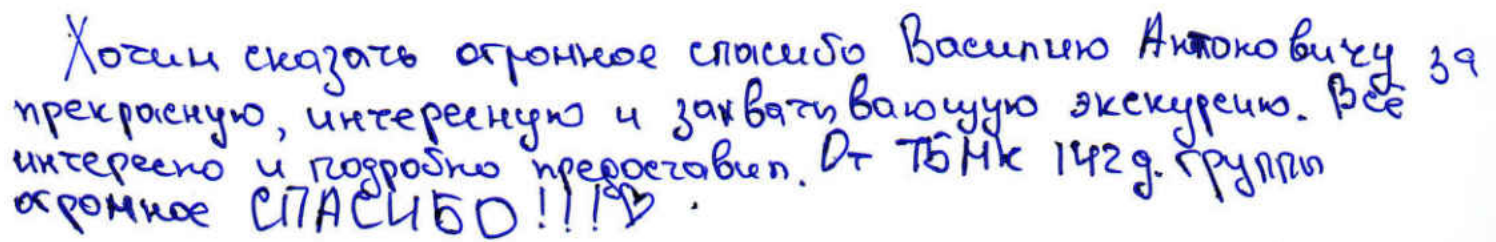 Хочим сказать огромное спасибо Василию Антоновичу за
прекрасную, интересную и захватывающую экскурсию. Всё
интересно и подробно предоставил. От ТБМК 142д. группы
огромное СПАСИБО!!!♡.